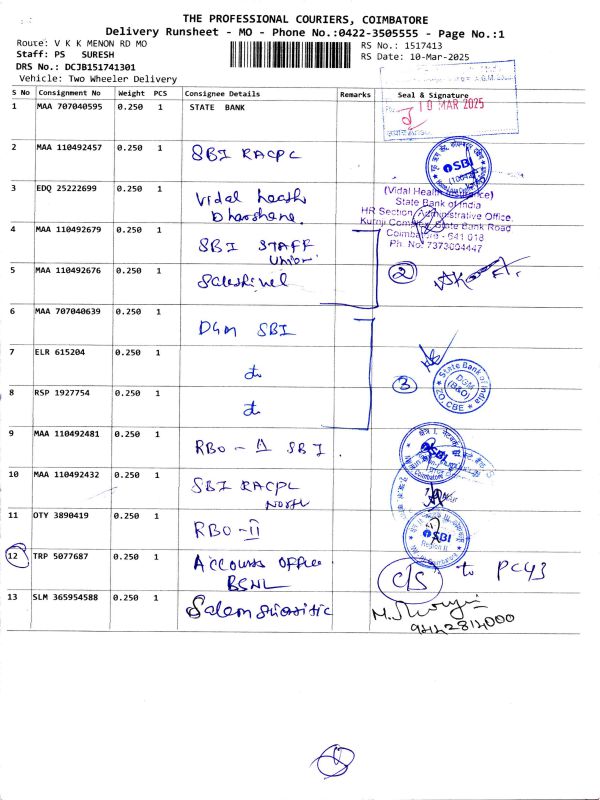 THE PROFESSIONAL COURIERS, COIMBATORE
Delivery Runsheet - MO - Phone No.:0422-3505555 - Page No.:1
Route: V K K MENON RD MO
RS No.: 1517413
Staff: PS SURESH
RS Date: 10-Mar-2025
DRS No.: DCJB151741301
Vehicle: Two Wheeler Delivery
S No Consignment No Weight PCS Consignee Details Remarks Seal & Signature
1 MAA 707040595 0.250 1 STATE BANK
10 MAR 2025
2 MAA 110492457 0.250 1 SBI RACPC
SBI
3 EDQ 25222699 0.250 1 Vidal heath
Dharshene.
(Vidal Health
State Bank of India
HR Section, Administrative Office,
State Bank Road
Coimbatore - 641 018
Ph. No: 7373004447
4 MAA 110492679 0.250 1 SBI STAFF
Union
5 MAA 110492676 0.250 1
2
6 MAA 707040639 0.250 1 DGM SBI
7 ELR 615204 0.250 1 do
3
State Bank of India
DGM
(B&O)
ZO, CBE
8 RSP 1927754 0.250 1 do
9 MAA 110492481 0.250 1 RBO - II SBI.
SBI
Coimbatore
10 MAA 110492432 0.250 1 SBI RACPC
North
11 OTY 3890419 0.250 1 RBO - II
SBI
Region II
12 TRP 5077687 0.250 1 Accounts Office
BSNL
C/S to PC43
13 SLM 365954588 0.250 1